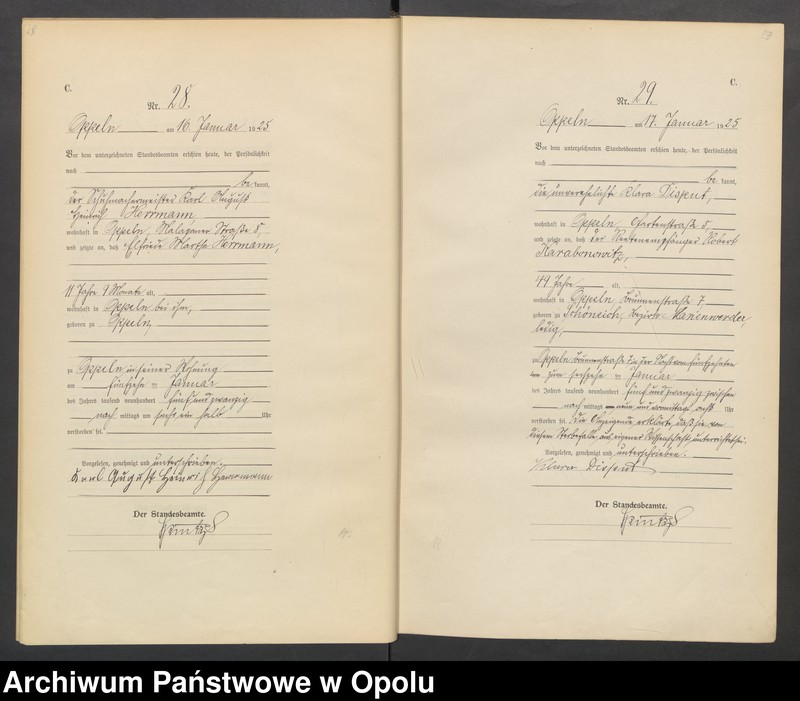 C.
Nr. 28.
Oppeln am 16. Januar 1925
Vor dem unterzeichneten Standesbeamten erschien heute, der Persönlichkeit
nach
be kannt,
der Schuhmachermeister Karl August
Heinrich Herrmann
wohnhaft in Oppeln, Malapaner Straße 5,
und zeigte an, daß Elfriede Martha Herrmann,
11 Jahre 9 Monate alt,
wohnhaft in Oppeln bei ihm,
geboren zu Oppeln,
zu Oppeln in seiner Wohnung
am fünfzehn ten Januar
des Jahres tausend neunhundert fünf und zwanzig
nach mittags um sechs ein halb Uhr
verstorben sei.
Vorgelesen, genehmigt und unterschrieben.
Karl August Heinrich Herrmann
Der Standesbeamte.
C.
Nr. 29.
Oppeln am 17. Januar 1925
Vor dem unterzeichneten Standesbeamten erschien heute, der Persönlichkeit
nach
be kannt,
die unverehelichte Klara Dispent,
wohnhaft in Oppeln, Gartenstraße 5,
und zeigte an, daß der Rentenempfänger Robert
Karabonowitz,
49 Jahre alt,
wohnhaft in Oppeln, Brunnenstraße 7,
geboren zu Schöneich, Bezirk Marienwerder,
ledig,
zu Oppeln Brunnenstraße 7 in der Nacht vom fünfzehnten
zum sechzehn ten Januar
des Jahres tausend neunhundert fünf und zwanzig zwischen
nach mittags neun und vormittags acht Uhr
verstorben sei. Die Anzeigende erklärte, daß sie von
diesem Sterbefalle aus eigener Wissenschaft unterrichtet sei.
Vorgelesen, genehmigt und unterschrieben.
Klara Dispent
Der Standesbeamte.
Archiwum Państwowe w Opolu